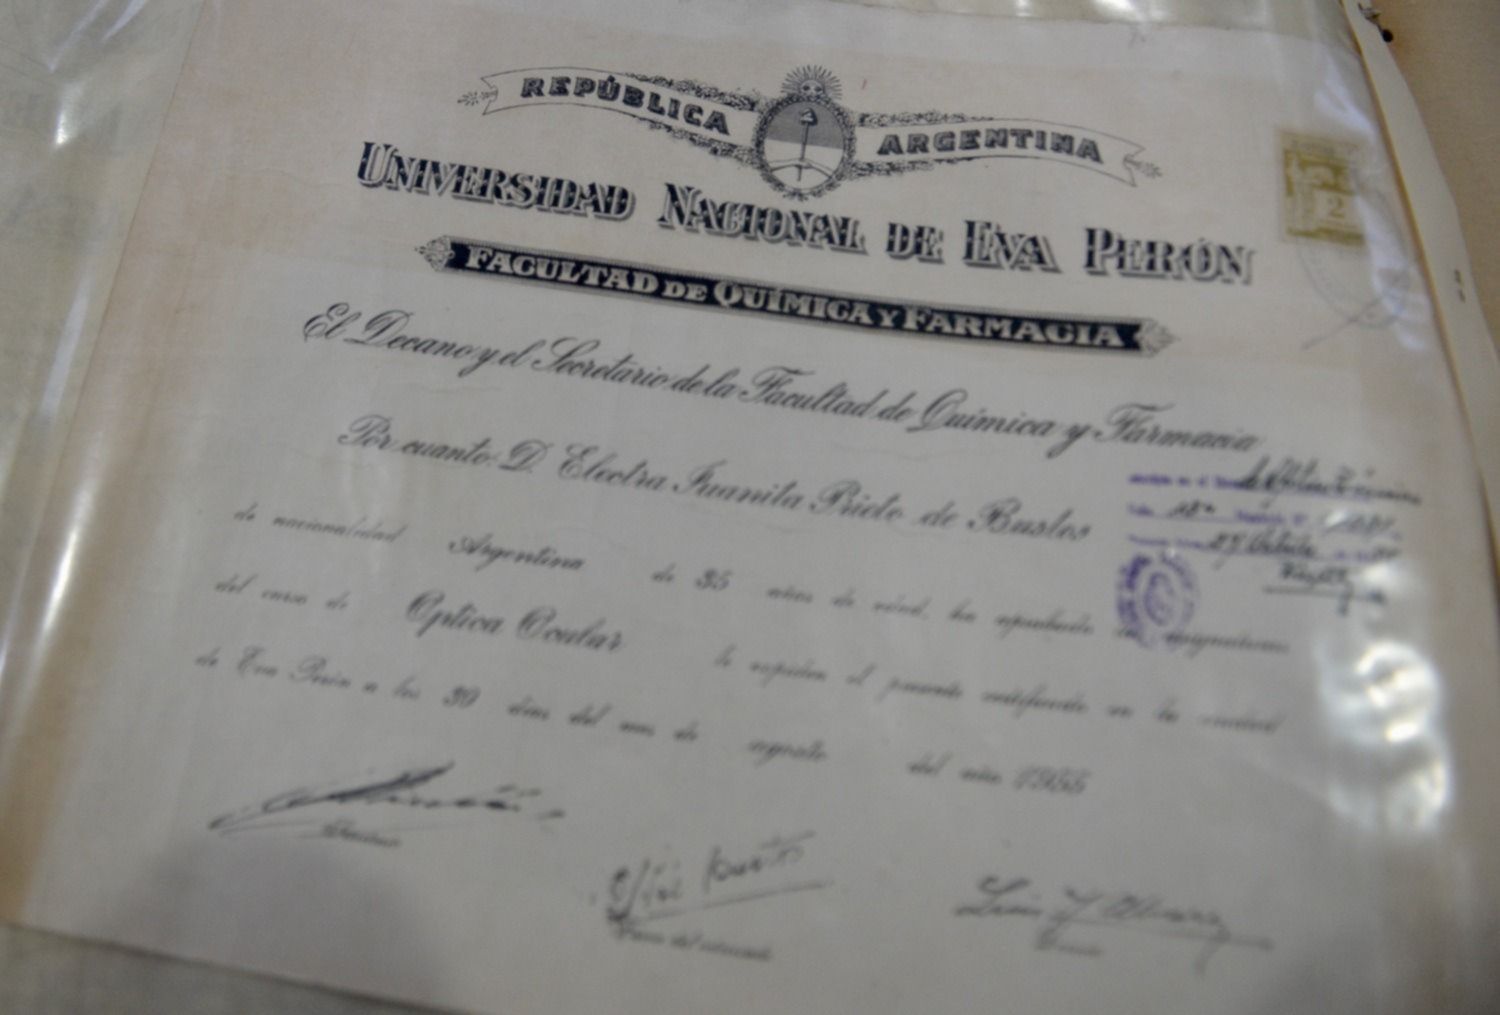 REPÚBLICA ARGENTINA
UNIVERSIDAD NACIONAL DE EVA PERÓN
FACULTAD DE QUÍMICA Y FARMACIA
2
El Decano y el Secretario de la Facultad de Química y Farmacia
Por cuanto: D. Electra Juanita Prieto de Bustos
de nacionalidad Argentina de 35 años de edad, ha aprobado las asignaturas
del curso de Optica Ocular le expiden el presente certificado en la ciudad
de Eva Perón a los 30 días del mes de agosto del año 1955